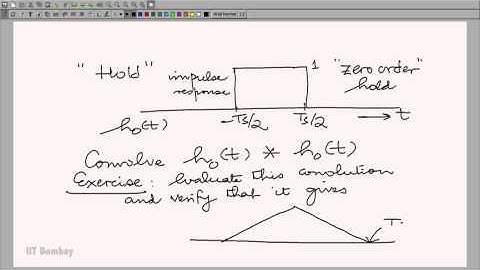 "Hold" impulse response 1 "zero order" hold
h₀(t) -Ts/2 Ts/2 → t
Convolve h₀(t) * h₀(t)
Exercise: evaluate this convolution
and verify that it gives
T.
IIT Bombay